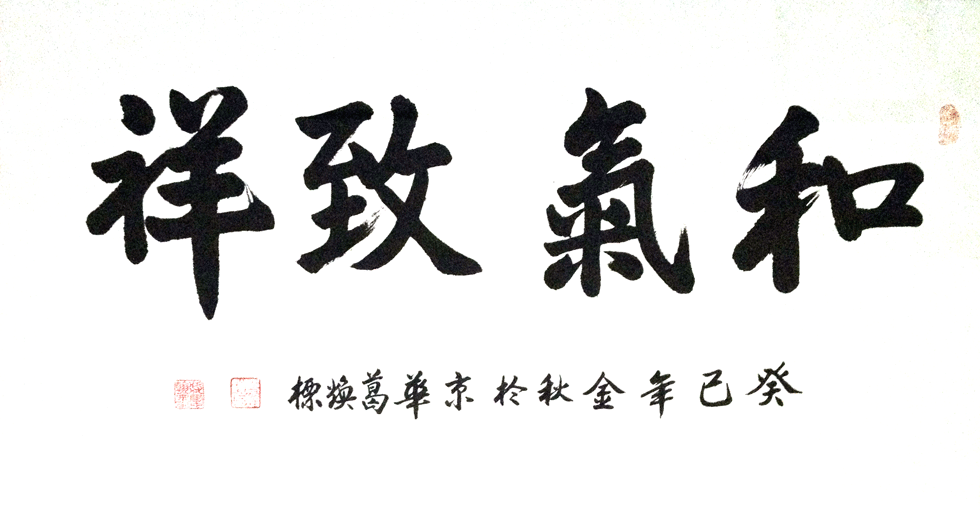 和氣致祥
癸巳年金秋於京華葛煥標